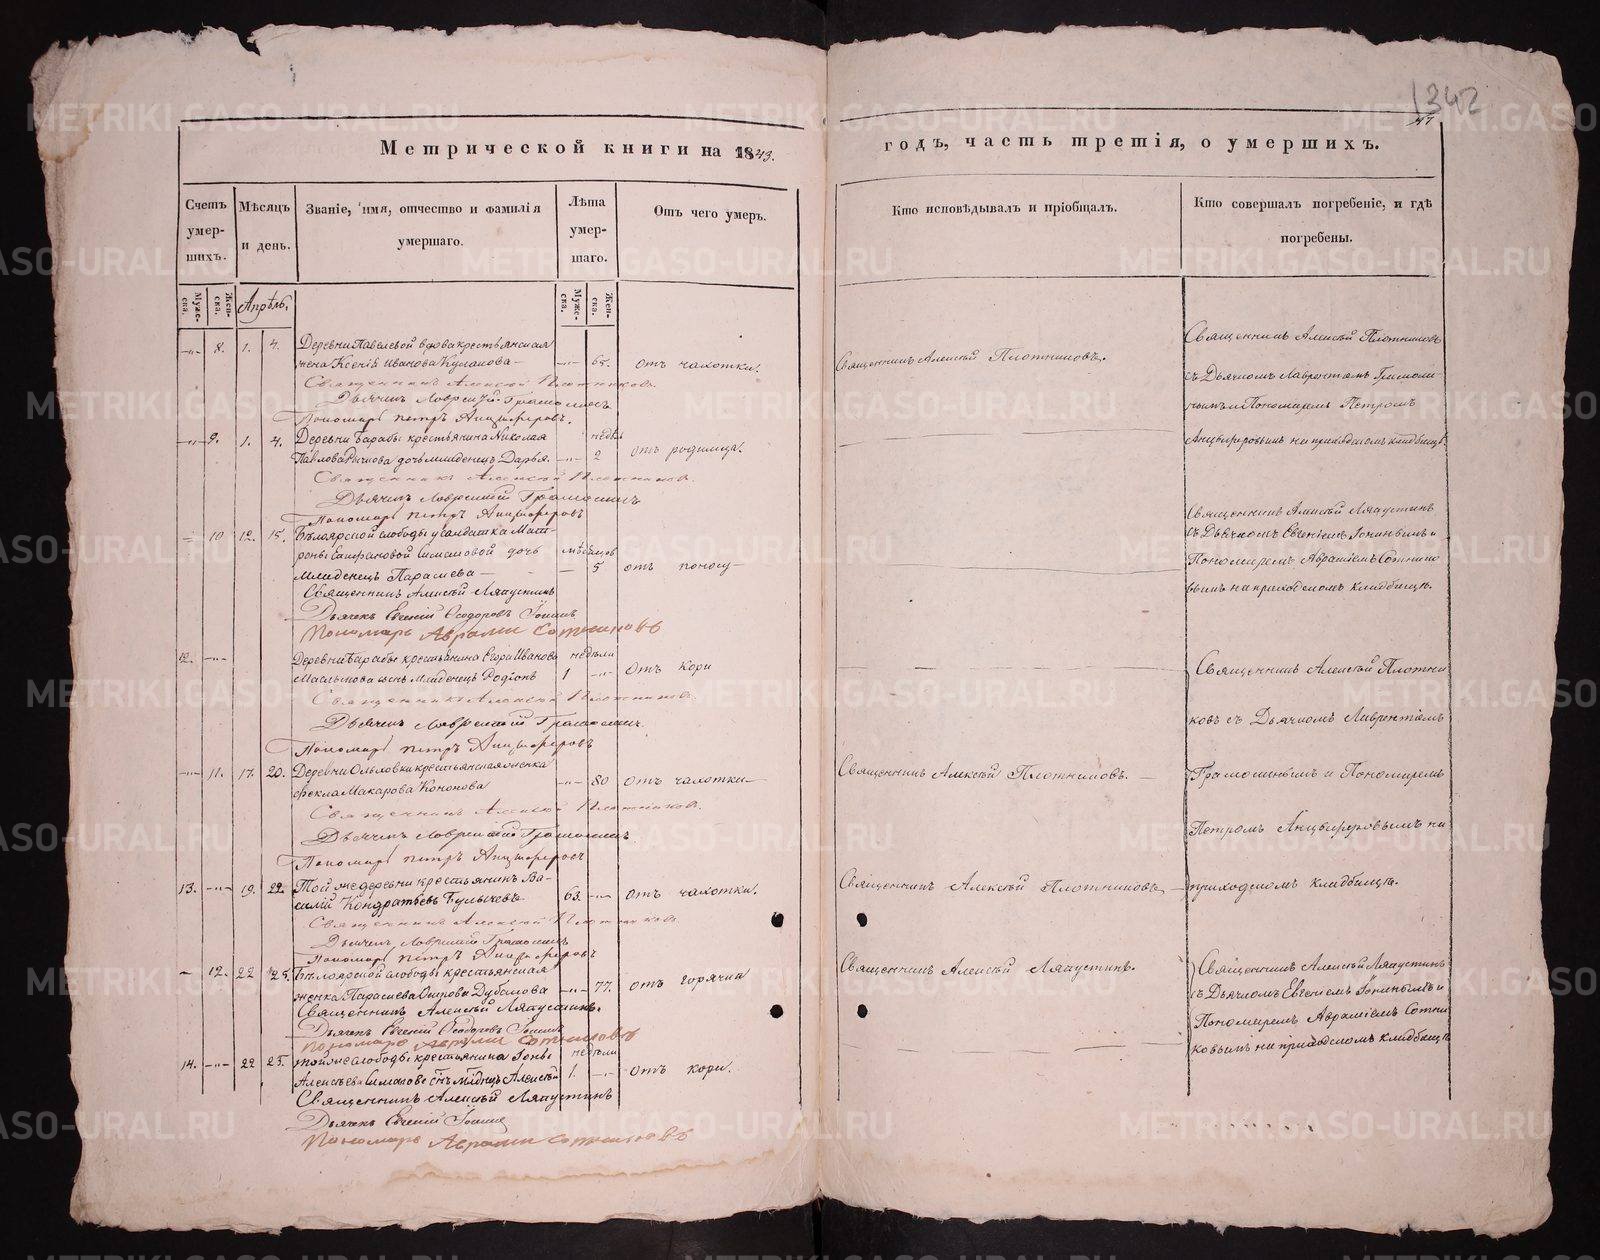 1342
47
Метрической книги на 1843.
годъ, часть третія, о умершихъ.
Счетъ умер-шихъ.
Мѣсяцъ и день.
Званіе, имя, отчество и фамилія умершаго.
Лѣта умер-шаго.
Отъ чего умеръ.
Кто исповѣдывалъ и пріобщалъ.
Кто совершалъ погребеніе, и гдѣ погребены.
Муже-ска.
Жен-ска.
Апрѣль.
Муже-ска.
Жен-ска.
8. 1. 4. Деревни Павелевой вдова крестьянская
жена Ксенія Иванова 65. отъ чахотки.
Священникъ Алексѣй Плотниковъ.
Священникъ Алексѣй Плотниковъ
съ Дьячкомъ Лаврентіемъ
и Пономаремъ Петромъ
на приходскомъ кладбищѣ.
Священникъ Алексѣй Плотниковъ.
Дьячекъ Лаврентій
Пономарь Петръ Анцыферовъ.
9. 1. 4. Деревни Барабы крестьянина Николая недѣль
Павлова дочь младенецъ Дарья. 2 отъ родимца.
Священникъ Алексѣй Плотниковъ.
Дьячекъ Лаврентій
Пономарь Петръ Анцыферовъ
10 12. 15. Бѣлоярской слободы у солдатки Мат-
роны дочь мѣсяцовъ
Младенецъ Параскева 5 отъ поносу
Священникъ Алексѣй Ляпустинъ
съ Дьячкомъ Евгеніемъ и
Пономаремъ Авраміемъ Сотнико
вымъ на приходскомъ кладбищѣ.
Священникъ Алексѣй Ляпустинъ
Дьячекъ Евгеній Ѳеодоровъ
Пономарь Аврамій Сотниковъ
12. Деревни Барабы крестьянина Егора Иванова недѣли
сынъ младенецъ Родіонъ 1 отъ кори
Священникъ Алексѣй Плотни
ковъ съ Дьячкомъ Лаврентіемъ
Священникъ Алексѣй Плотниковъ.
Дьячекъ Лаврентій
Пономарь Петръ Анцыферовъ
11. 17. 20. Деревни крестьянская женка
Ѳекла Макарова Кононова 80 отъ чахотки
Священникъ Алексѣй Плотниковъ.
и Пономаремъ
Петромъ Анцыферовымъ на
приходскомъ кладбищѣ.
Священникъ Алексѣй Плотниковъ.
Дьячекъ Лаврентій
Пономарь Петръ Анцыферовъ
13. 19. 22. Той же деревни крестьянинъ Ва-
силій Кондратьевъ Булычевъ 63. отъ чахотки.
Священникъ Алексѣй Плотниковъ
Священникъ Алексѣй Плотниковъ.
Дьячекъ Лаврентій
Пономарь Петръ Анцыферовъ
12. 22 25. Бѣлоярской слободы крестьянская
женка Параскева 77. отъ горячки
Священникъ Алексѣй Ляпустинъ.
Священникъ Алексѣй Ляпустинъ
съ Дьячкомъ Евгеніемъ и
Пономаремъ Авраміемъ Сотни
ковымъ на приходскомъ кладбищѣ
Священникъ Алексѣй Ляпустинъ.
Дьячекъ Евгеній Ѳеодоровъ
Пономарь Аврамій Сотниковъ
14. 22 25. Той же слободы крестьянина недѣли
Алексѣева сынъ Алексѣй 1. отъ кори.
Священникъ Алексѣй Ляпустинъ
Дьячекъ Евгеній
Пономарь Аврамій Сотниковъ
METRIKI.GASO-URAL.RU